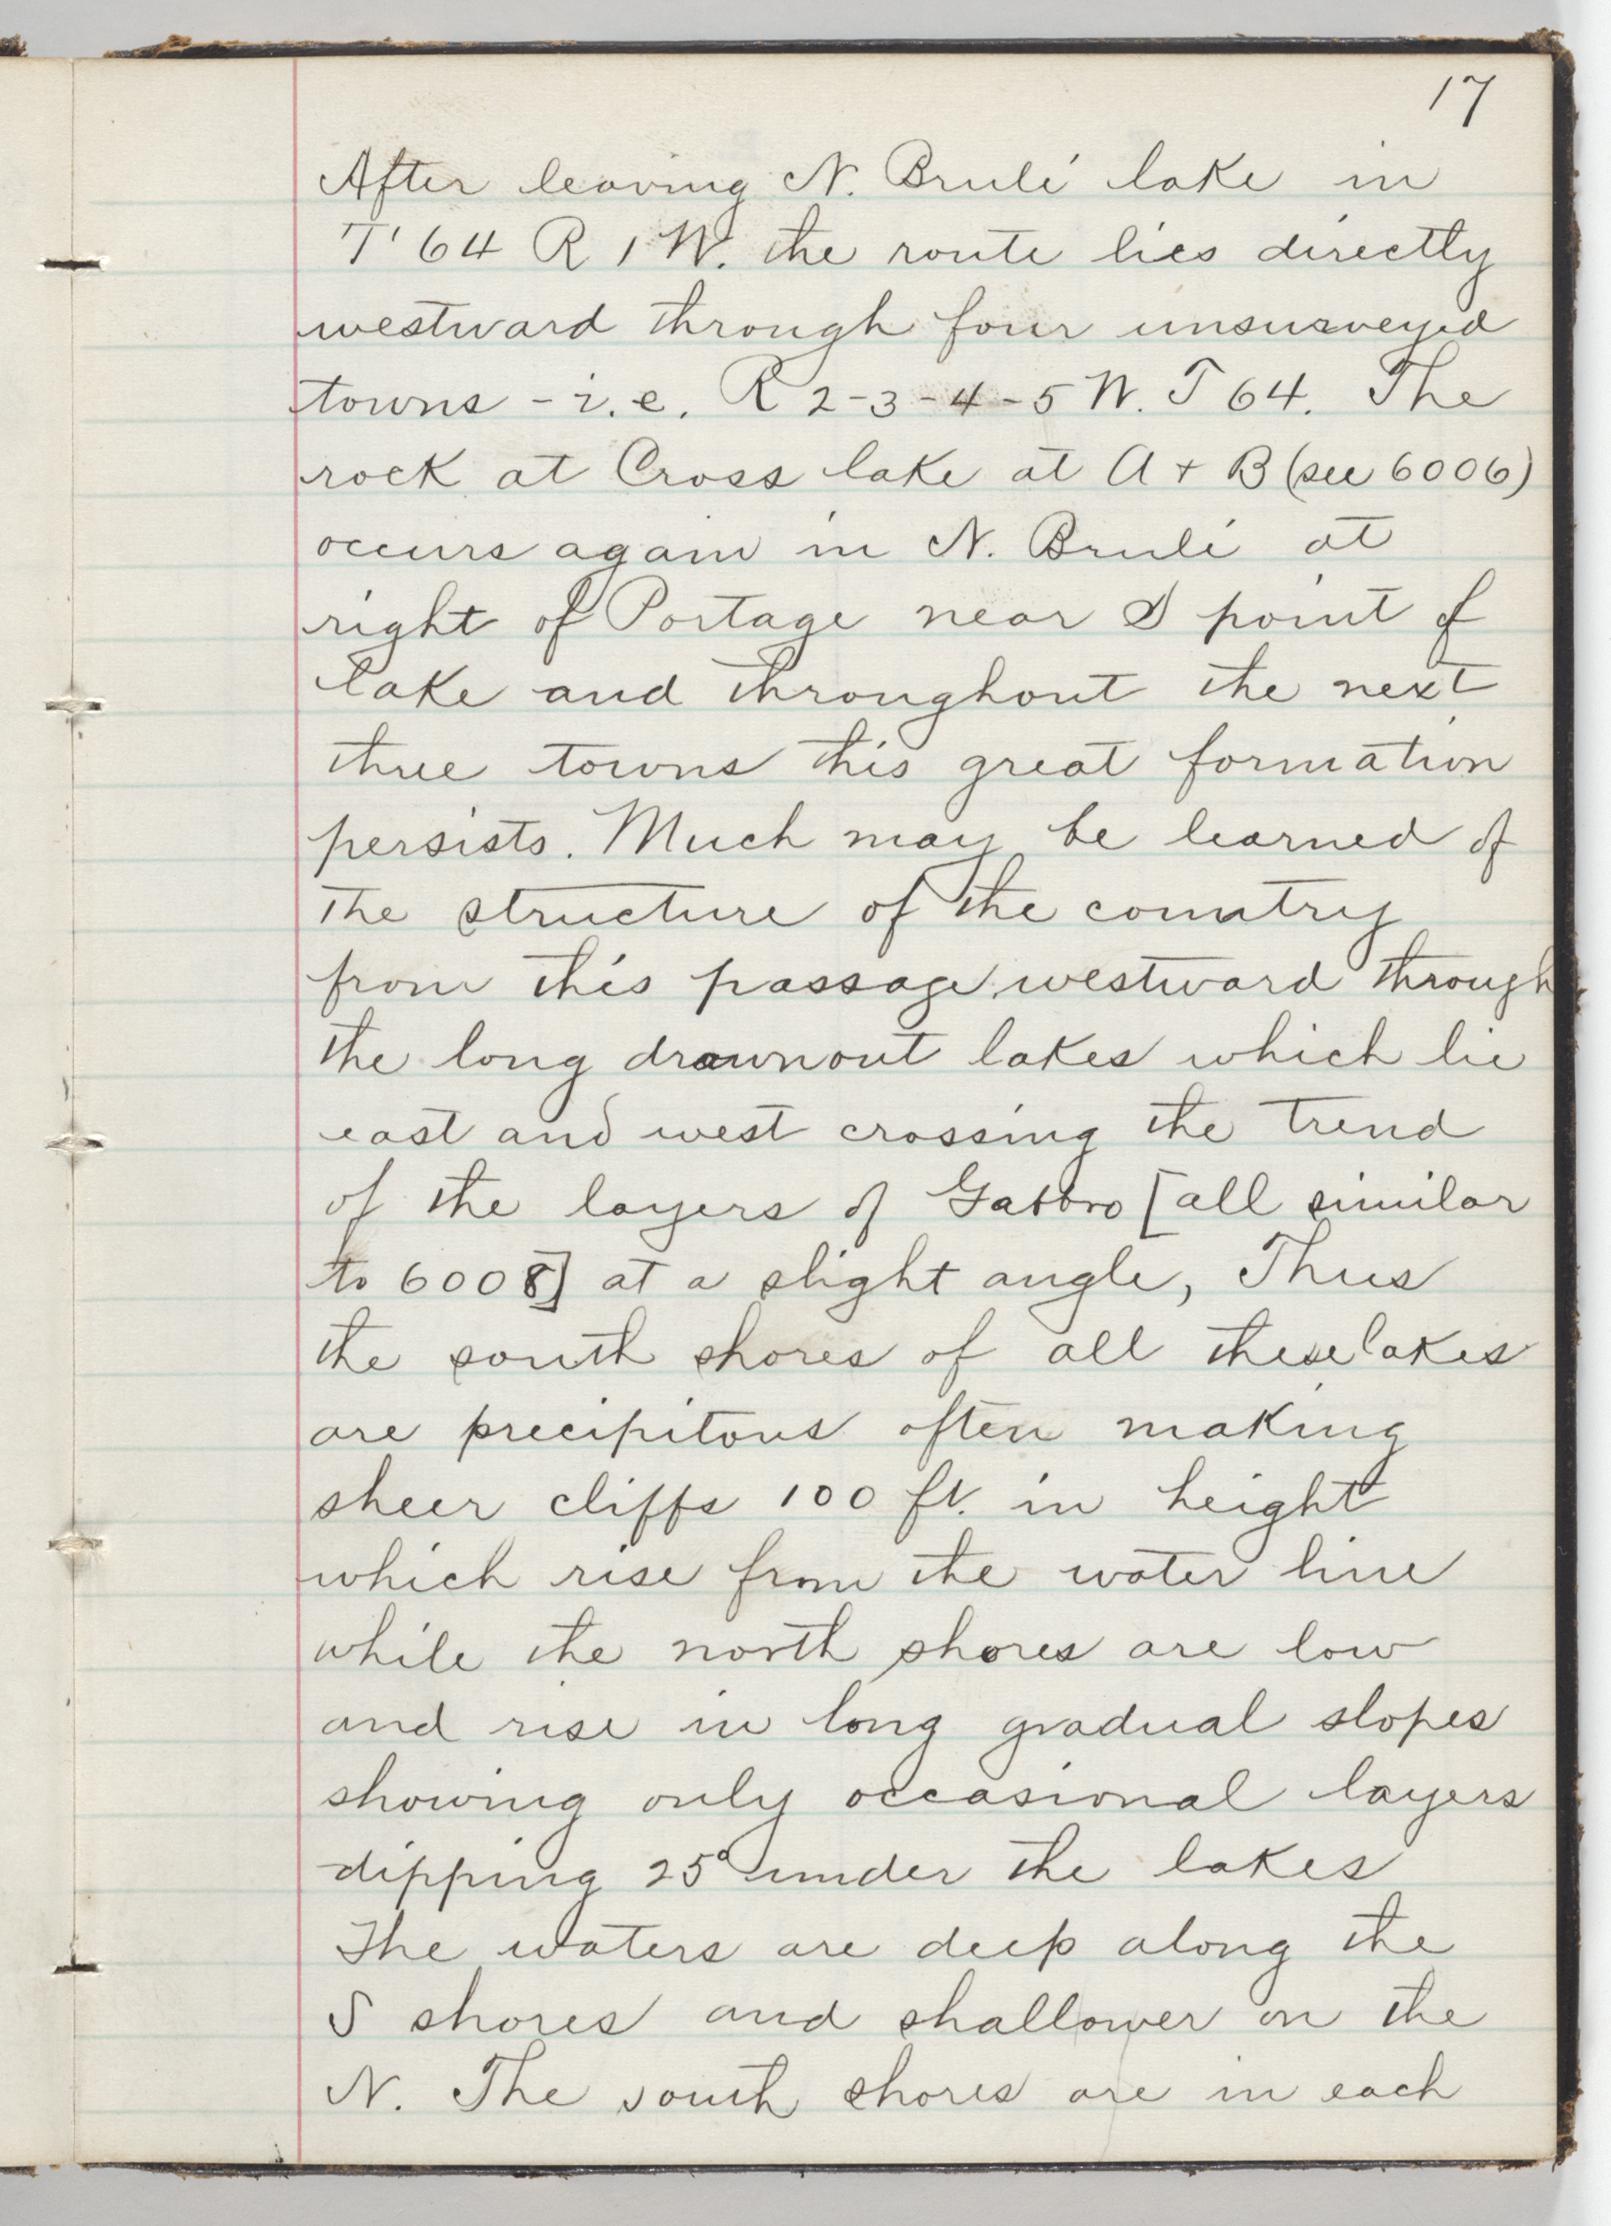 17
After leaving N. Brulé lake in
T 64 R 1 W. the route lies directly
westward through four unsurveyed
towns - i.e. R 2-3-4-5 W. T 64. The
rock at Cross lake at A + B (see 6006)
occurs again in N. Brulé at
right of Portage near S point of
lake and throughout the next
three towns this great formation
persists. Much may be learned of
the structure of the country
from this passage westward through
the long drawnout lakes which lie
east and west crossing the trend
of the layers of Gabbro [all similar
to 6008] at a slight angle, Thus
the south shores of all these lakes
are precipitous often making
sheer cliffs 100 ft. in height
which rise from the water line
while the north shores are low
and rise in long gradual slopes
showing only occasional layers
dipping 25° under the lakes
The waters are deep along the
S shores and shallower on the
N. The south shores are in each